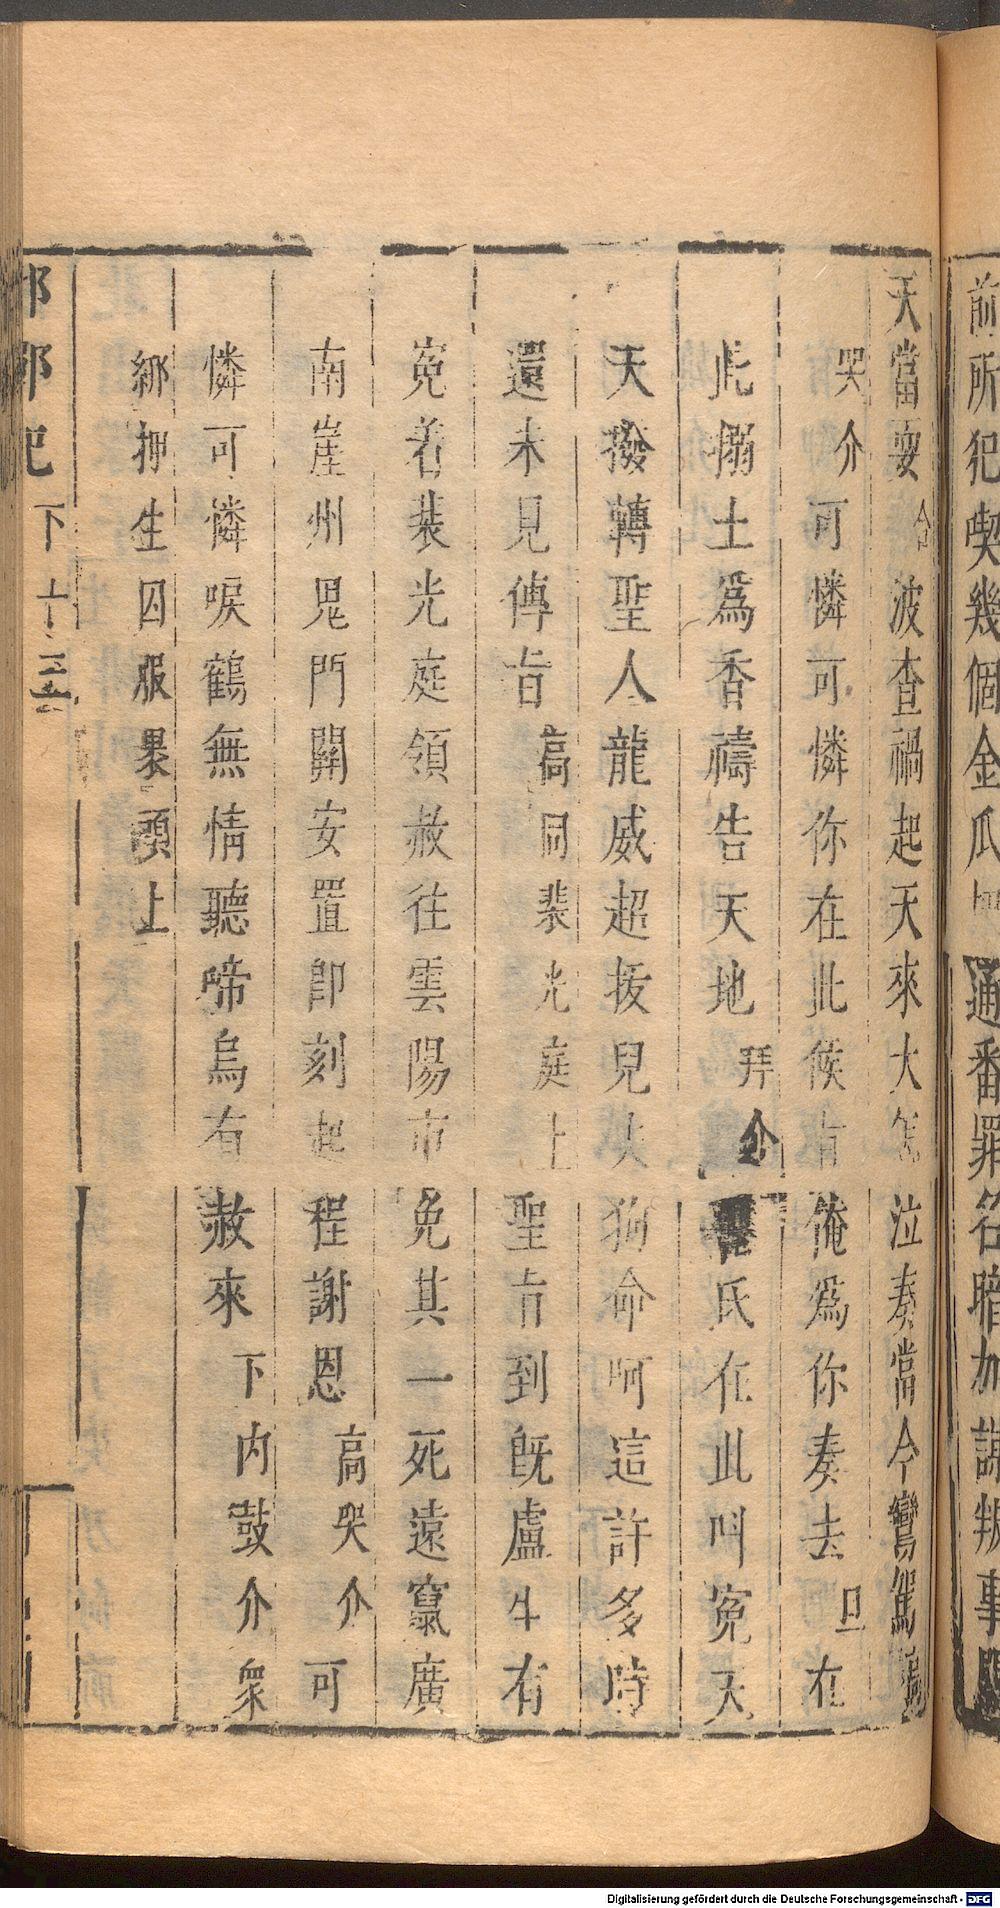 前所犯喫幾個金瓜 通番罪名暗加謀叛事
天當要合波查禍起天來大怎泣奏當今鸞駕
哭介可憐可憐你在此候旨俺爲你奏去旦在
此搠土爲香禱告天地拜介 氏在此叫冤天
天撥轉聖人龍威超拔兒夫狗命呵這許多時
還未見傳旨高同裴光庭上聖旨到旣盧生有
冤着裴光庭領赦往雲陽市免其一死遠竄廣
南崖州鬼門關安置卽刻起程謝恩高哭介可
憐可憐唳鶴無情聽啼烏有赦來下內鼓介衆
綁押生囚服裹頭上
邯鄲記 下 十三
Digitalisierung gefördert durch die Deutsche Forschungsgemeinschaft - DFG